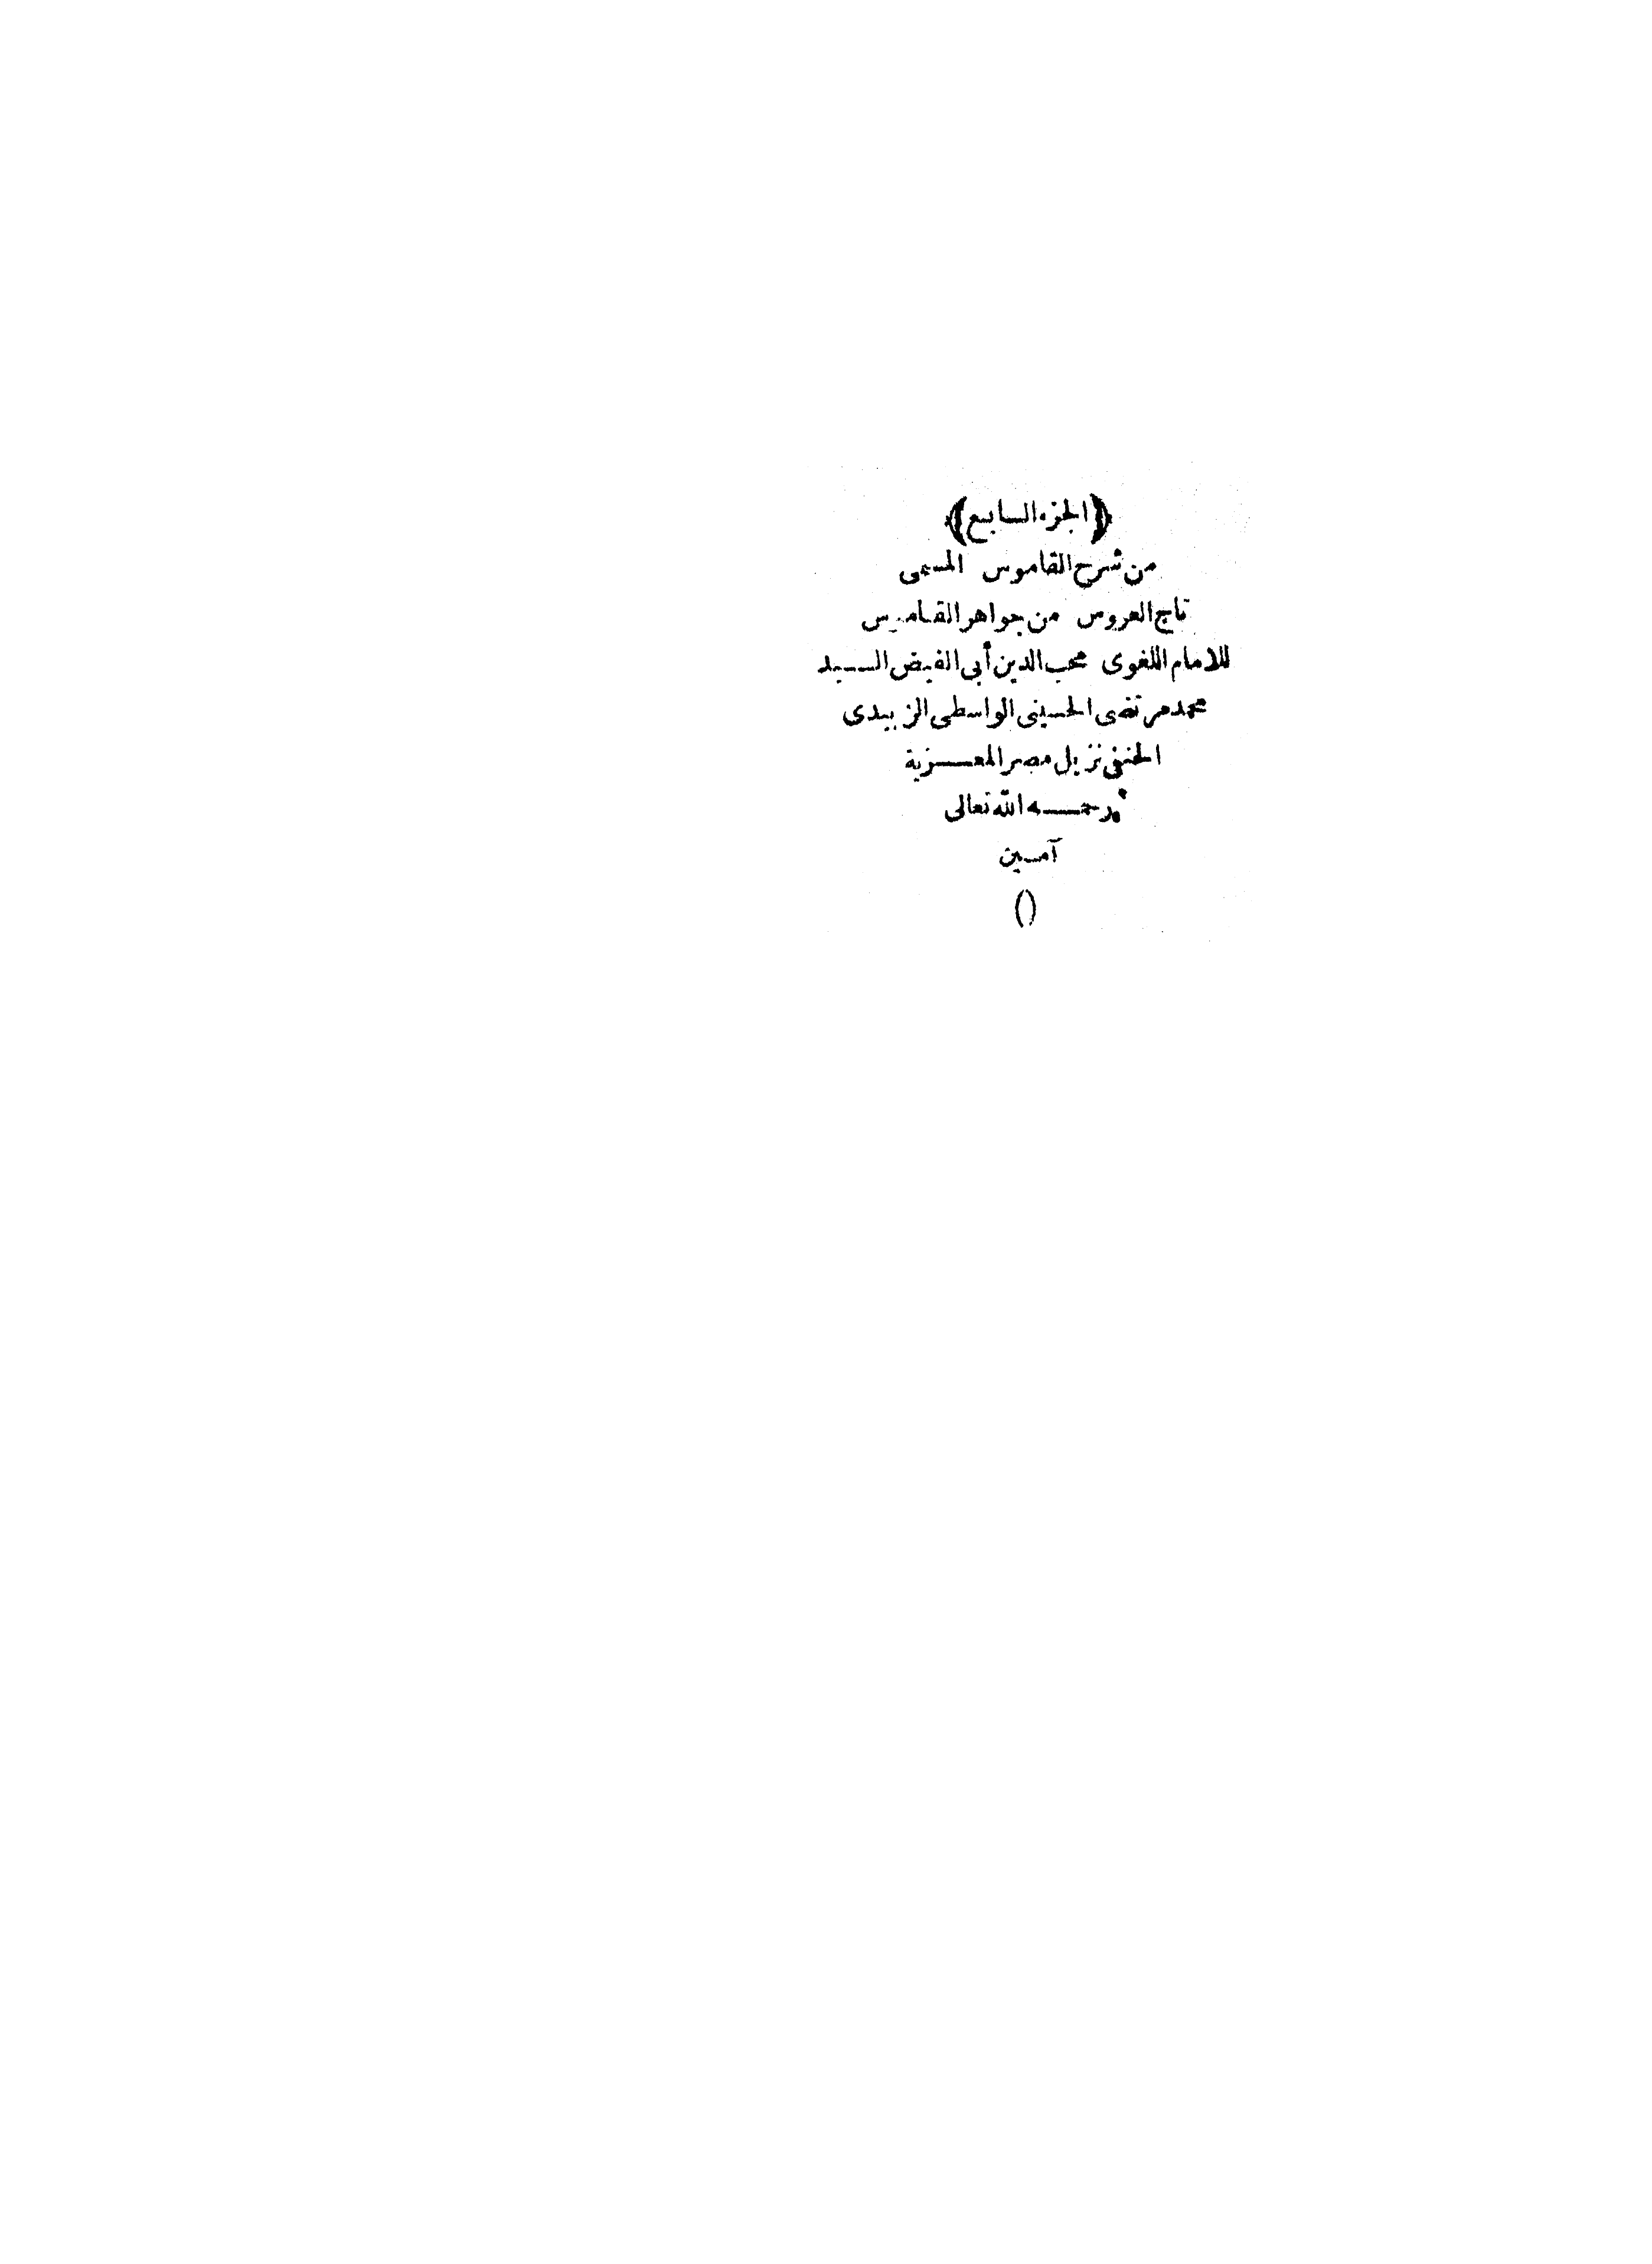 ﴿الجزء السابع﴾
من شرح القاموس المسمى
تاج العروس من جواهر القاموس
للامام اللغوى محب الدين أبى الفيض السيد
محمد مرتضى الحسينى الواسطى الزبيدى
الحنفى نزيل مصر المعزية
رحمه الله تعالى
آمين
()